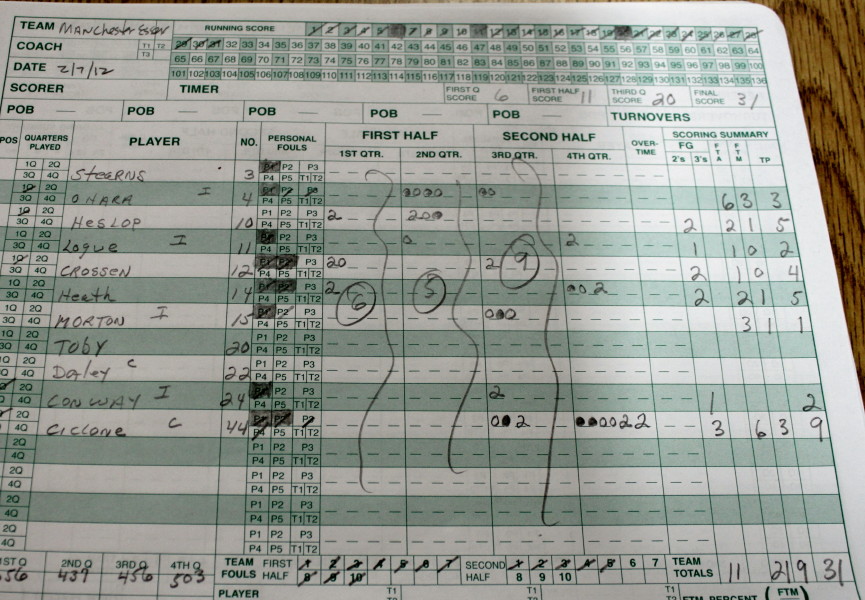 TEAM Manchester Essex RUNNING SCORE 1 2 3 4 5 7 8 9 10 12 13 14 15 16 17 18 19 21 22 23 24 25 26 27 28
COACH T1 T2 T3 29 30 31 32 33 34 35 36 37 38 39 40 41 42 43 44 45 46 47 48 49 50 51 52 53 54 55 56 57 58 59 60 61 62 63 64
65 66 67 68 69 70 71 72 73 74 75 76 77 78 79 80 81 82 83 84 85 86 87 88 89 90 91 92 93 94 95 96 97 98 99 100
DATE 2/7/12 101 102 103 104 105 106 107 108 109 110 111 112 113 114 115 116 117 118 119 120 121 122 123 124 125 126 127 128 129 130 131 132 133 134 135 136
SCORER TIMER FIRST Q SCORE 6 FIRST HALF SCORE 11 THIRD Q SCORE 20 FINAL SCORE 31
POB — POB — POB — POB — POB — TURNOVERS
POS QUARTERS PLAYED PLAYER NO. PERSONAL FOULS FIRST HALF 1ST QTR. 2ND QTR. SECOND HALF 3RD QTR. 4TH QTR. OVER-TIME SCORING SUMMARY FG 2's 3's FTA FTM TP
1Q 2Q 3Q 4Q STEARNS 3 P1 P2 P3 P4 P5 T1 T2
1Q 2Q 3Q 4Q OHARA I 4 P1 P2 P3 P4 P5 T1 T2 6 3 3
1Q 2Q 3Q 4Q HESLOP 10 P1 P2 P3 P4 P5 T1 T2 2 2 2 1 5
1Q 2Q 3Q 4Q Logue I 11 P1 P2 P3 P4 P5 T1 T2 0 2 1 1 0 2
1Q 2Q 3Q 4Q CROSSEN 12 P1 P2 P3 P4 P5 T1 T2 20 2 9 2 1 0 4
1Q 2Q 3Q 4Q Heath 14 P1 P2 P3 P4 P5 T1 T2 2 6 5 2 2 2 1 5
1Q 2Q 3Q 4Q MORTON I 15 P1 P2 P3 P4 P5 T1 T2 3 1 1
1Q 2Q 3Q 4Q TOBY 20 P1 P2 P3 P4 P5 T1 T2
1Q 2Q 3Q 4Q Daley C 22 P1 P2 P3 P4 P5 T1 T2
2Q 4Q CONWAY I 24 P1 P2 P3 P4 P5 T1 T2 2 1 2
2Q 4Q CICLONE C 44 P1 P2 P3 P4 P5 T1 T2 2 22 3 6 3 9
2Q 4Q P1 P2 P3 P4 P5 T1 T2
2Q 4Q P1 P2 P3 P4 P5 T1 T2
2Q 4Q P1 P2 P3 P4 P5 T1 T2
2Q 4Q P1 P2 P3 P4 P5 T1 T2
1ST Q 2ND Q 439 3RD Q 456 4TH Q 503 TEAM FOULS FIRST HALF 1 2 3 4 5 6 7 8 9 10 SECOND HALF 1 2 3 4 5 6 7 8 9 10 TEAM TOTALS 11 21 9 31
PLAYER T1 T1 FTM PERCENT (FTM